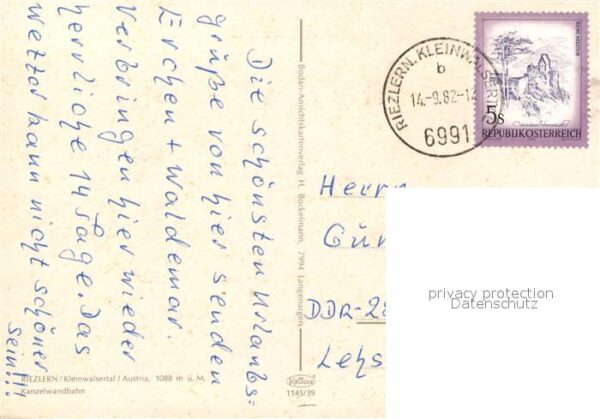 Die schönsten Urlaubs=
grüße von hier senden
Erchen + Waldemar.
Verbringen hier wieder
herrliche 14 Tage. Das
Wetter kann nicht schöner
sein!!!
RIEZLERN / Kleinwalsertal / Austria, 1088 m ü. M.
Kanzelwandbahn
Bodan-Ansichtskartenverlag H. Bockelmann, 7994 Langenargen
Krüger
1145/39
RIEZLERN, KLEINWALSERTAL
b
14.-9.82-12
6991
RUINE AGGSTEIN
5s
REPUBLIK ÖSTERREICH
Herrn
Gün
DDR-22
Lehs
privacy protection
Datenschutz